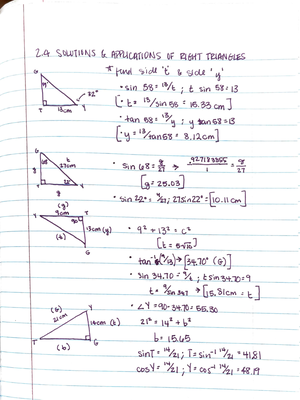 2.4 SOLUTIONS & APPLICATIONS OF RIGHT TRIANGLES
* find side 't' & side 'y'
G
y
t
32°
T 13cm Y
• sin 58 = 13/t ; t sin 58 = 13
[• t = 13/sin 58 = 15.33 cm]
• tan 58 = 13/y ; y tan 58 = 13
[• y = 13/tan 58 = 8.12 cm]
G
68
t
27cm
y
22°
T Y
g
(g)
• sin 68 = g/27 → .927183855/1 = g/27
[g = 25.03]
• sin 22° = y/27 ; 27 sin 22° = [10.11 cm]
(y)
Y 9cm T
90°
13cm (y)
(t)
G
• 9² + 13² = c²
[t = 5√10]
• tan⁻¹(9/13) → [34.70° (G)]
• sin 34.70 = 9/t ; t sin 34.70 = 9
t = 9/sin 34.7 → [15.81cm = t]
(G)
21cm
Y
14cm (t)
T (b) G
• ∠Y = 90 - 34.70 = 55.30
21² = 14² + b²
b = 15.65
sinT = 14/21 ; T = sin⁻¹ 14/21 = 41.81
cosY = 14/21 ; Y = cos⁻¹ 14/21 = 48.19